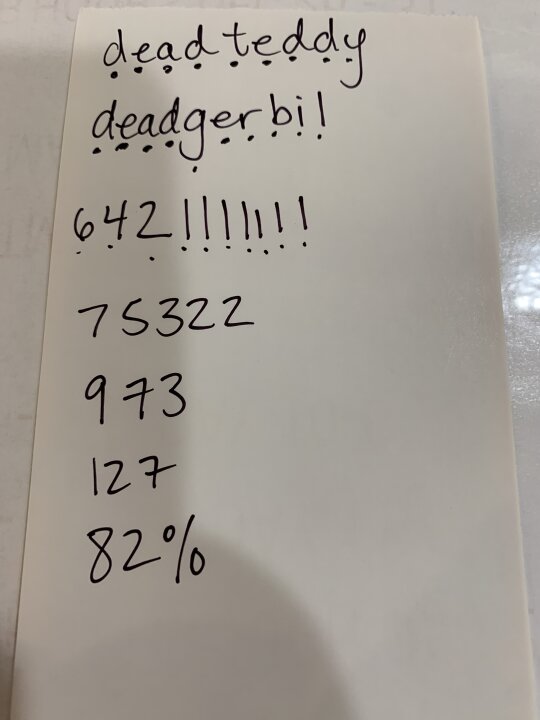 dead teddy
deadgerbil
6421111111
75322
973
127
82%